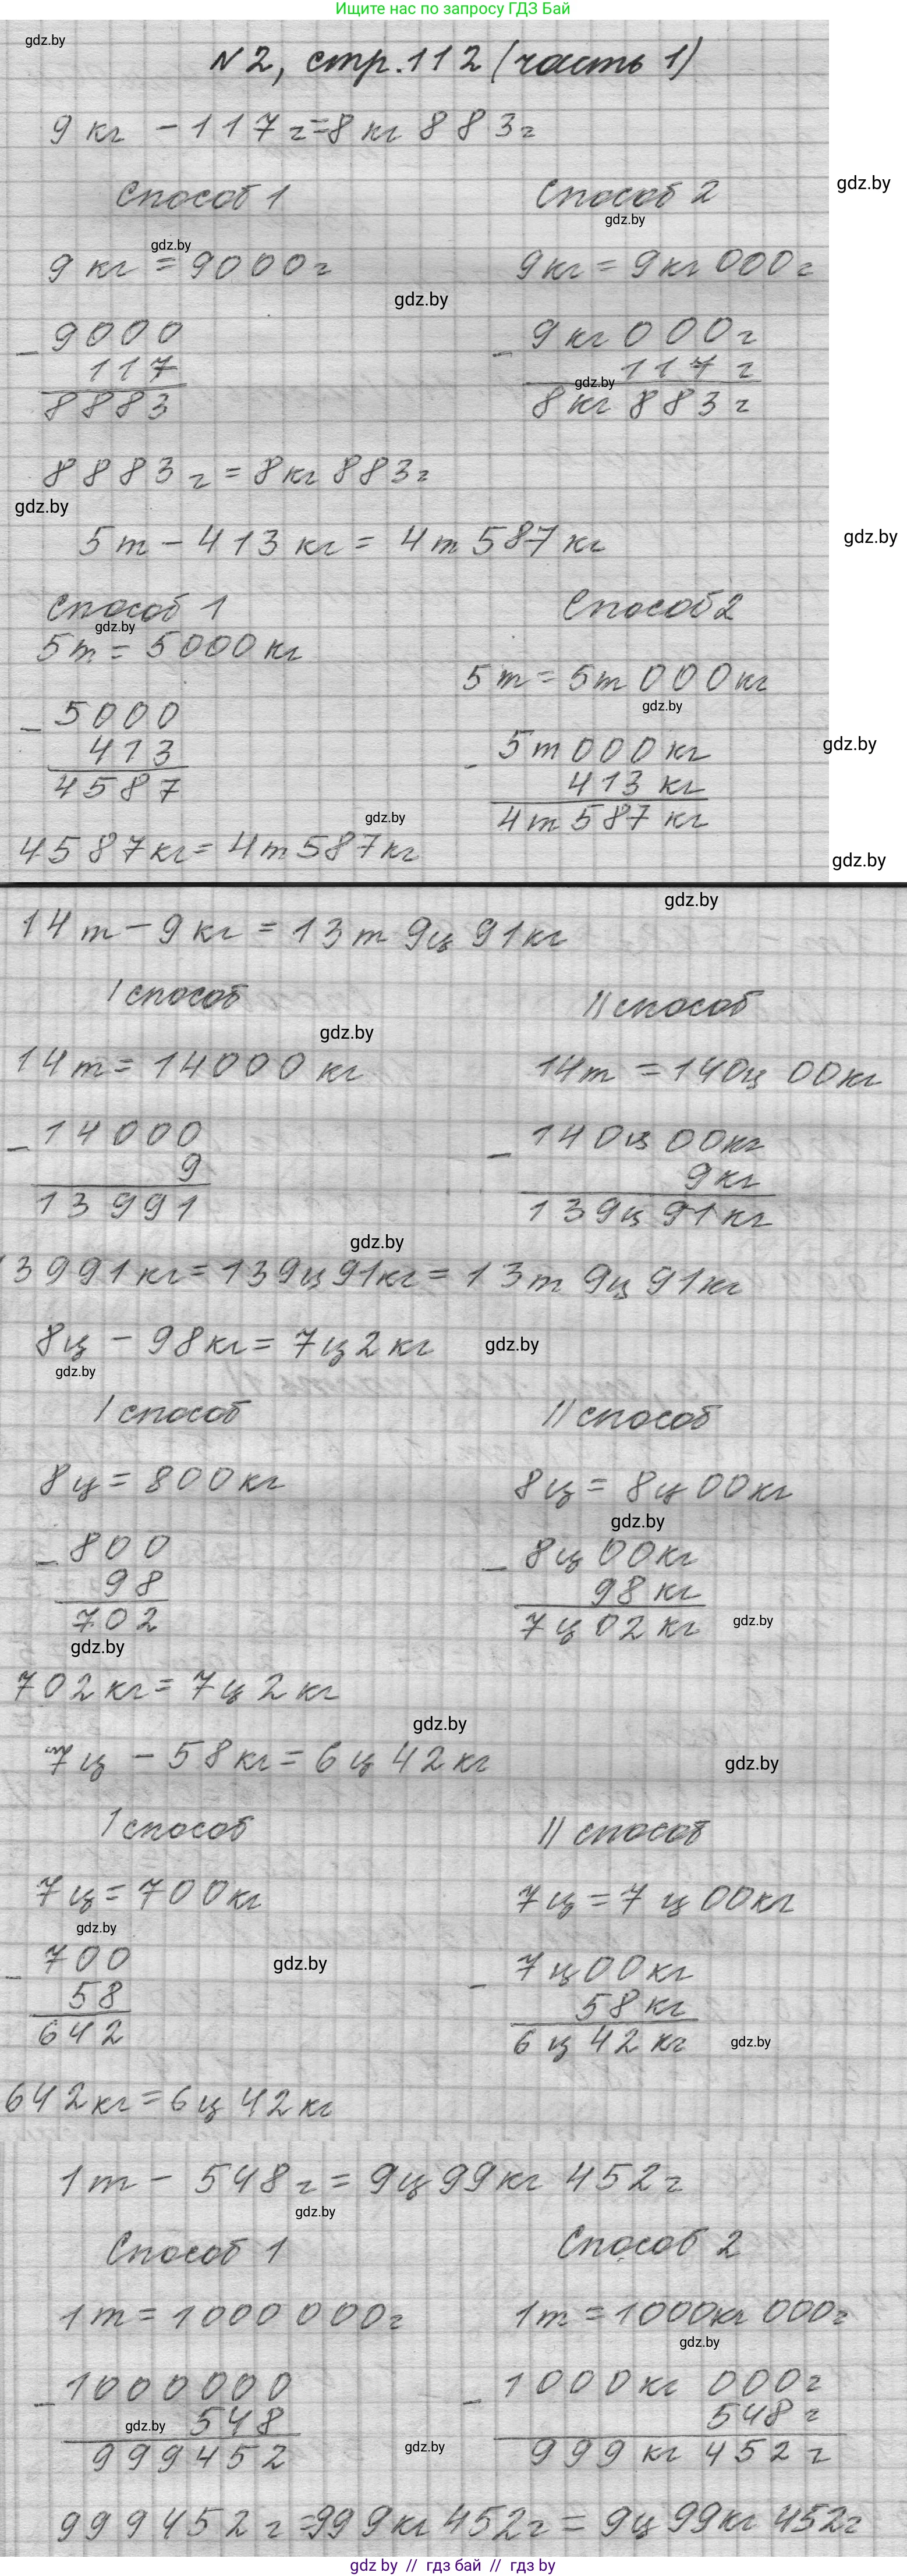 Ищите нас по запросу ГДЗ Бай
gdz.by
N2, стр.112 (часть 1)
9 кг - 117 г = 8 кг 883 г
gdz.by
Способ 1 Способ 2
gdz.by
gdz.by
9 кг = 9000 г 9 кг = 9 кг 000 г
gdz.by
- 9000 - 9 кг 000 г
117 117 г
gdz.by
8883 8 кг 883 г
8883 г = 8 кг 883 г
gdz.by
5 т - 413 кг = 4 т 587 кг
gdz.by
Способ 1 Способ 2
gdz.by
5 т = 5000 кг
5 т = 5 т 000 кг
gdz.by
- 5000
- 5 т 000 кг
gdz.by
413
413 кг
4587
4 т 587 кг
gdz.by
4587 кг = 4 т 587 кг
gdz.by
gdz.by
14 т - 9 кг = 13 т 9 ц 91 кг
I способ II способ
gdz.by
14 т = 14000 кг 14 т = 140 ц 00 кг
- 14000 - 140 ц 00 кг
9 9 кг
13991 139 ц 91 кг
gdz.by
13991 кг = 139 ц 91 кг = 13 т 9 ц 91 кг
8 ц - 98 кг = 7 ц 2 кг
gdz.by
gdz.by
I способ II способ
8 ц = 800 кг 8 ц = 8 ц 00 кг
gdz.by
- 800 - 8 ц 00 кг
98 98 кг
702 7 ц 02 кг
gdz.by
gdz.by
702 кг = 7 ц 2 кг
gdz.by
7 ц - 58 кг = 6 ц 42 кг
gdz.by
I способ II способ
7 ц = 700 кг 7 ц = 7 ц 00 кг
gdz.by
- 700 - 7 ц 00 кг
gdz.by
58 58 кг
642 6 ц 42 кг
gdz.by
642 кг = 6 ц 42 кг
1 т - 548 г = 9 ц 99 кг 452 г
gdz.by
Способ 1 Способ 2
1 т = 1000 000 г 1 т = 1000 кг 000 г
gdz.by
- 1000000 - 1000 кг 000 г
548 548 г
gdz.by
gdz.by
999452 999 кг 452 г
999452 г = 999 кг 452 г = 9 ц 99 кг 452 г
gdz by // гдз бай // gdz by